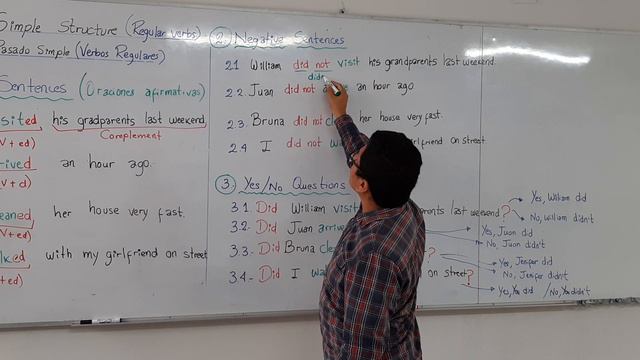 Simple Structure (Regular verbs)
Pasado Simple (Verbos Regulares)
Sentences (Oraciones afirmativas)
sited his gradparents last weekend.
Complement
V + ed)
rived an hour ago.
V + d)
eaned her house very fast.
V + ed)
lked with my girlfriend on street
+ ed)
2 Negative Sentences
2.1 William did not visit his grandparents last weekend.
didn
2.2. Juan did not an hour ago.
2.3. Bruna did not cle her house very fast.
2.4 I did not wa girlfriend on street.
3. Yes/No Questions
3.1. Did William visit parents last weekend?
Yes, William did
No, William didn't
3.2- Did Juan arrive
Yes, Juan did
No, Juan didn't
3.3- Did Bruna cle ?
Yes, Jenifer did
No, Jenifer didn't
3.4- Did I wa on street?
Yes, You did / No, You didn't